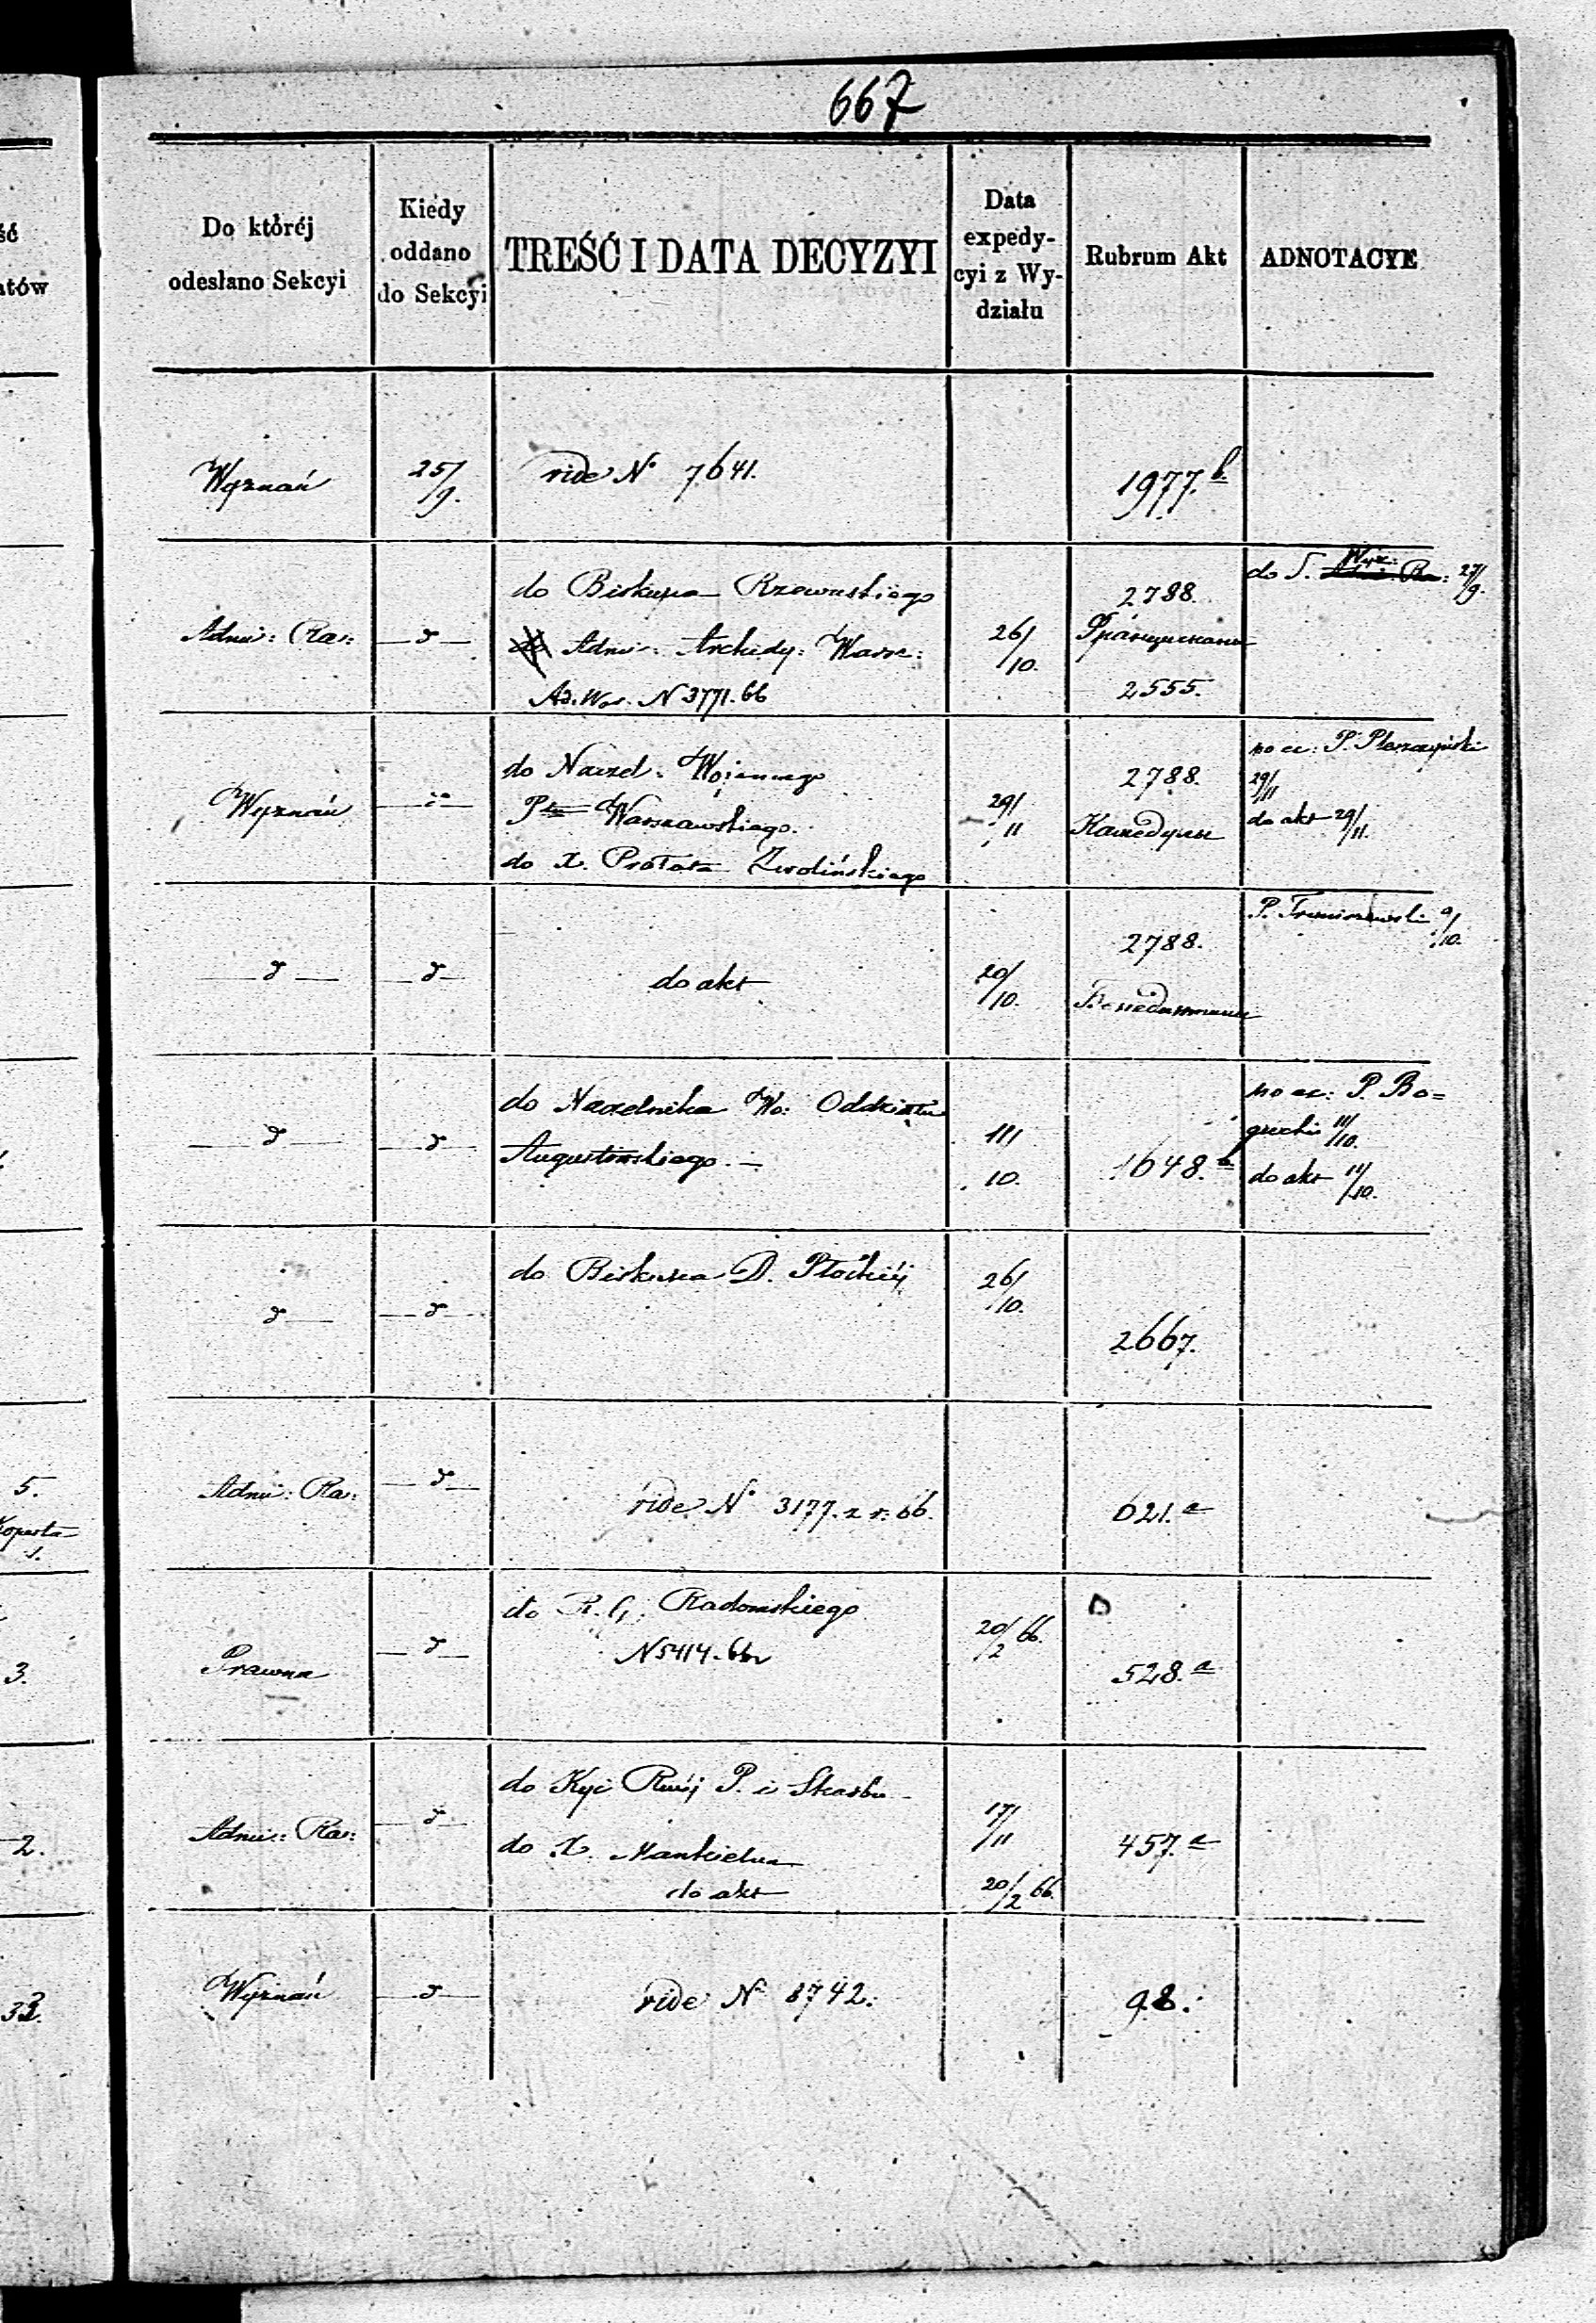 667
Do któréj
odesłano Sekcyi
Kiedy
oddano
do Sekcyi
TREŚĆ I DATA DECYZYI
Data
expedy-
cyi z Wy-
działu
Rubrum Akt
ADNOTACYE
Wyznań
25/9.
vide N° 7641.
1977.b.
Admi: Ra:
do Biskupa Rzewuskiego
Admi: Archidy: Warsz:
N 3771.66
26/10.
2788.
2555.
do S. Wyz: 27/9.
Wyznań
do Naczel. Wojennego
Warszawskiego.
do X. Prałata Zwolińskiego
29/11
2788.
P.
29/11
do akt 29/11.
do akt
20/10.
2788.
P.
/10.
do Naczelnika Wo: Oddziału
Augustowskiego.
11/10.
1648.
P. Bo=
gucki 11/10.
do akt 11/10.
do Biskupa D. Płockiéj
26/10.
2667.
Admi: Ra:
vide N° 3177. z r. 66.
621.a
Prawna
do R. G. Radomskiego
N 5414.66
20/2 66.
528.a
Admi: Ra:
do Kyi Rwéj P. i Skarbu
do X. Mankielun
do akt
17/11
20/2 66.
457.a
Wyznań
vide N° 8742.
98.
5.
3.
2.